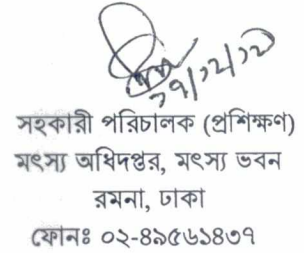 সহকারী পরিচালক (প্রশিক্ষণ)
মৎস্য অধিদপ্তর, মৎস্য ভবন
রমনা, ঢাকা
ফোনঃ ০২-৪৯৫৬১৪৩৭